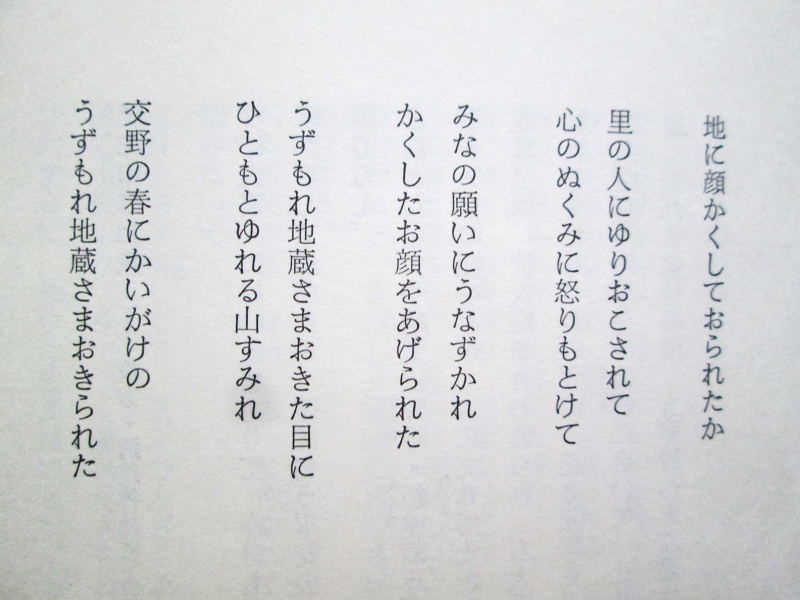 地に顔かくしておられたか
里の人にゆりおこされて
心のぬくみに怒りもとけて
みなの願いにうなずかれ
かくしたお顔をあげられた
うずもれ地蔵さまおきた目に
ひともとゆれる山すみれ
交野の春にかいがけの
うずもれ地蔵さまおきられた